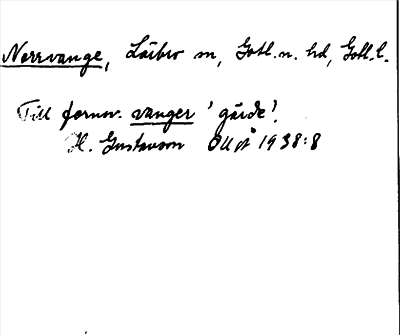 Norrvange, Lärbro sn, Gotl. n. hd, Gotl. l.
Till fornsv. vanger 'gärde'.
H. Gustavson 1938:8